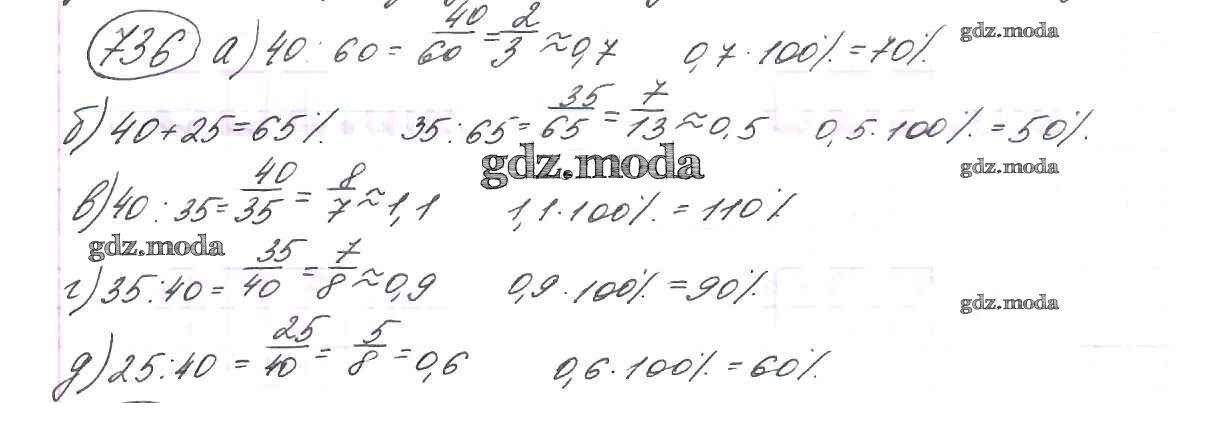 736 а) 40 : 60 = 40/60 = 2/3 ≈ 0,7 0,7 · 100% = 70%. gdz.moda
б) 40 + 25 = 65%. 35 : 65 = 35/65 = 7/13 ≈ 0,5 0,5 · 100% = 50%.
gdz.moda gdz.moda
в) 40 : 35 = 40/35 = 8/7 ≈ 1,1 1,1 · 100%. = 110%
gdz.moda
г) 35 : 40 = 35/40 = 7/8 ≈ 0,9 0,9 · 100% = 90%.
gdz.moda
д) 25 : 40 = 25/40 = 5/8 = 0,6 0,6 · 100%. = 60%.